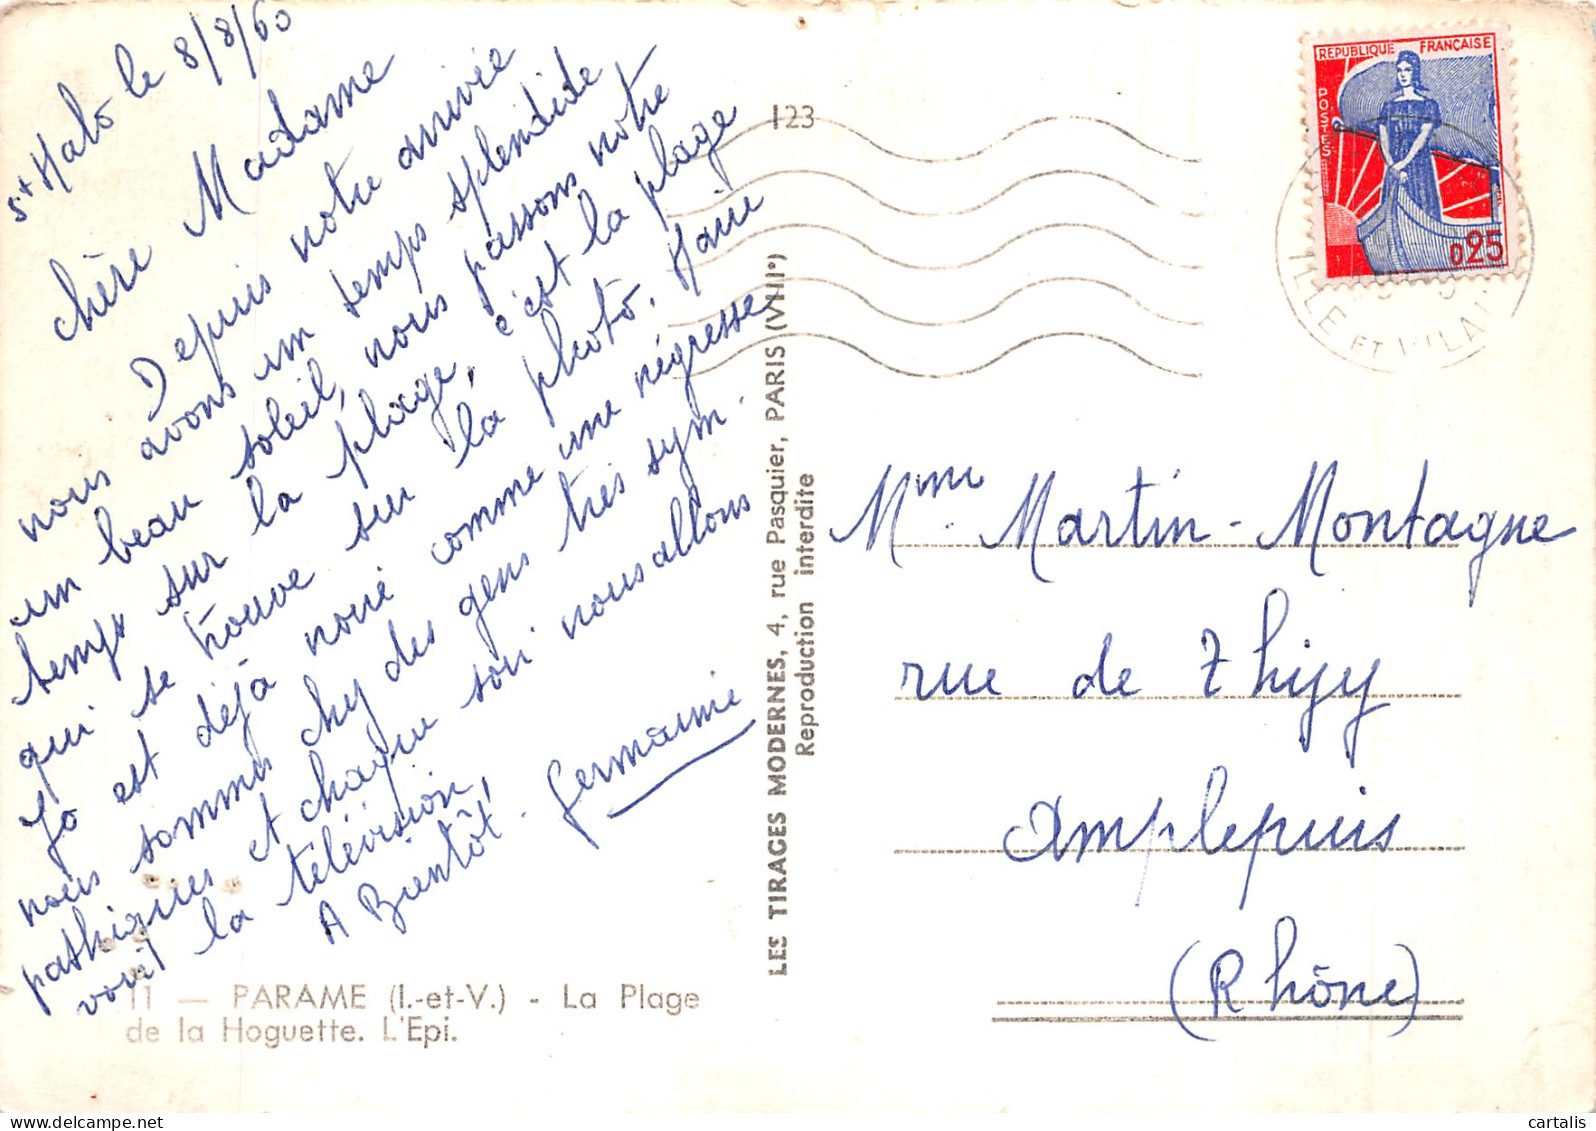 St Malo le 8/8/60
Chère Madame
Depuis notre arrivée
nous avons un temps splendide
un beau soleil, nous passons notre
temps sur la plage, c'est la plage
qui se trouve sur la photo. Marie
Jo est déjà noire comme une négresse
nous sommes chez des gens très sym-
pathiques et chaque soir nous allons
voir la télévision,
A Bientôt. Germaine
11 — PARAME (I.-et-V.) - La Plage
de la Hoguette. L'Epi.
LES TIRAGES MODERNES, 4, rue Pasquier, PARIS (VIII°)
Reproduction interdite
123
REPUBLIQUE FRANÇAISE
POSTES
0,25
ILLE ET VILAINE
Mme Martin-Montagne
rue de Thizy
Amplepuis
(Rhône)
cartalis